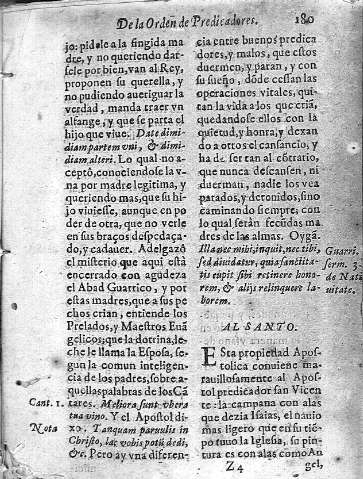 De la Orden de Predicadores. 180
jo: pidele a la fingida ma
dre, y no queriendo dar
sele por bien, van al Rey,
proponen su querella, y
no pudiendo aueriguar la
verdad, manda traer vn
alfange, y que se parta el
hijo que viue. Date dimi-
diam partem vni, & dimi-
diam alteri. Lo qual no a-
ceptò, conociendose la v-
na por madre legitima, y
queriendo mas, que su hi-
jo viuiesse, aunque en po
der de otra, que no verle
en sus braços despedaça-
do, y cadauer. Adelgazò
el misterio que aqui està
encerrado con agudeza
el Abad Guarrico, y por
estas madres, que a sus pe
chos crian, entiende los
Prelados, y Maestros Euã
gelicos; que la dotrina, le-
che le llama la Esposa, se-
gun la comun inteligen-
cia de los padres, sobre a-
quellas palabras de los Cã
Cant. 1. tares. Meliora sunt vbera
tua vino. Y el Apostol di-
Nota xo. Tanquam paruulis in
Christo, lac vobis potũ dedi,
&c. Pero ay vna diferen-
cia entre buenos predica
dores, y malos, que estos
duermen, y paran, y con
su sueño, dõde cessan las
operaciones vitales, qui-
tan la vida a los que criã,
quedandose ellos con la
quietud, y honra, y dexan
do a otros el cansancio, y
ha de ser tan al cõtrario,
que nunca descansen, ni
duerman, nadie los vea
parados, y detenidos, sino
caminando siempre, con
lo qual seràn fecũdas ma
dres de las almas. Oygã.
Illa nec mihi, inquit, nec tibi,
sed diuidatur, quia sanctita-
tis cupit sibi retinere hono-
rem, & alijs relinquere la-
borem.
Guarri.
serm. 3.
de Nati
uitate.
AL SANTO.
ESta propiedad Apos-
tolica conuiene ma-
rauillosamente al Apos-
tol predicador san Vicen
te: la campana con alas
que dezia Isaias, el nauio
mas ligero que en su tiẽ-
po tuuo la Iglesia, su pin-
tura es con alas como An
Z 4 gel,